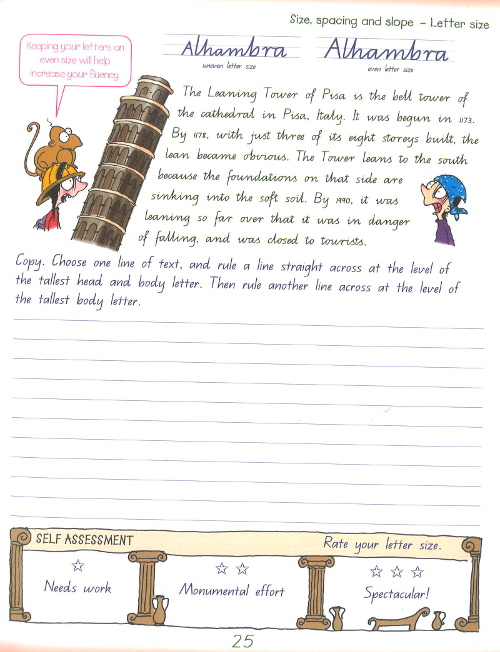 Size, spacing and slope – Letter size
Keeping your letters an
even size will help
increase your fluency.
Alhambra
uneven letter size
Alhambra
even letter size
The Leaning Tower of Pisa is the bell tower of
the cathedral in Pisa, Italy. It was begun in 1173.
By 1178, with just three of its eight storeys built, the
lean became obvious. The Tower leans to the south
because the foundations on that side are
sinking into the soft soil. By 1990, it was
leaning so far over that it was in danger
of falling, and was closed to tourists.
Copy. Choose one line of text, and rule a line straight across at the level of
the tallest head and body letter. Then rule another line across at the level of
the tallest body letter.
SELF ASSESSMENT
Rate your letter size.
Needs work
Monumental effort
Spectacular!
25